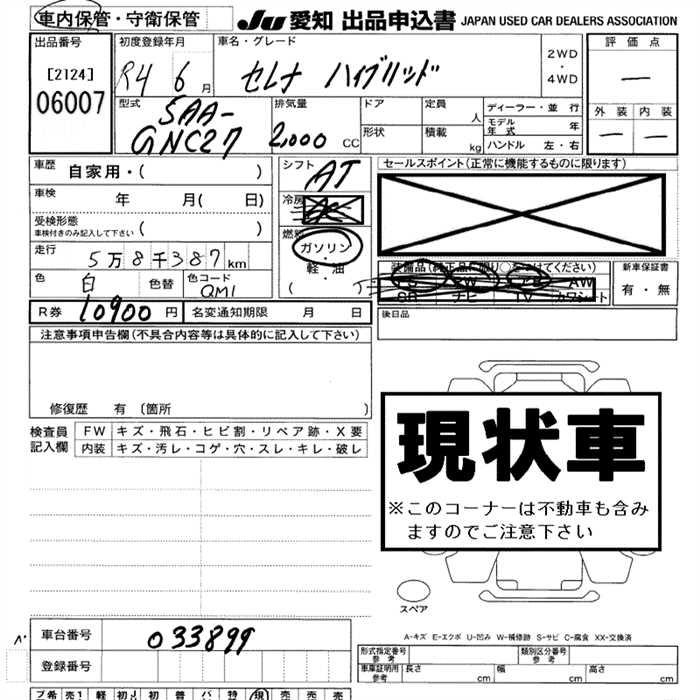 車内保管・守衛保管 JU 愛知 出品申込書 JAPAN USED CAR DEALERS ASSOCIATION
出品番号 [2124] 06007
初度登録年月 R4 6月
車名・グレード セレナ ハイブリッド
2WD・4WD
評価点 —
外装 内装
— —
型式 5AA-GNC27
排気量 2,000 CC
ドア 定員 人
形状 積載 kg
ディーラー・並行
モデル年式 年
ハンドル 左・右
車歴 自家用・( )
車検 年 月( 日)
受検形態
車検付きのみ記入して下さい ( )
走行 5万8千387km
色 白 色替 色コード QM1
シフト AT
冷房
燃料 ガソリン・軽・油
( )
セールスポイント(正常に機能するものに限ります)
ナビ TV カワシート
AW
新車保証書
有・無
R券 10900円 名変通知期限 月 日
後日品
注意事項申告欄(不具合内容等は具体的に記入して下さい)
修復歴 有 〔箇所 〕
検査員記入欄
FW キズ・飛石・ヒビ割・リペア跡・X要
内装 キズ・汚レ・コゲ・穴・スレ・キレ・破レ
現状車
※このコーナーは不動車も含み
ますのでご注意下さい
スペア
A-キズ E-エクボ U-凹み W-補修跡 S-サビ C-腐食 XX-交換済
車台番号 033899
登録番号
形式指定番号 参考 類別区分番号 参考
車庫証明用 参考 長さ cm 幅 cm 高さ cm
プ 希 売1 軽 初 初 普 パ 特 現 売 売 売